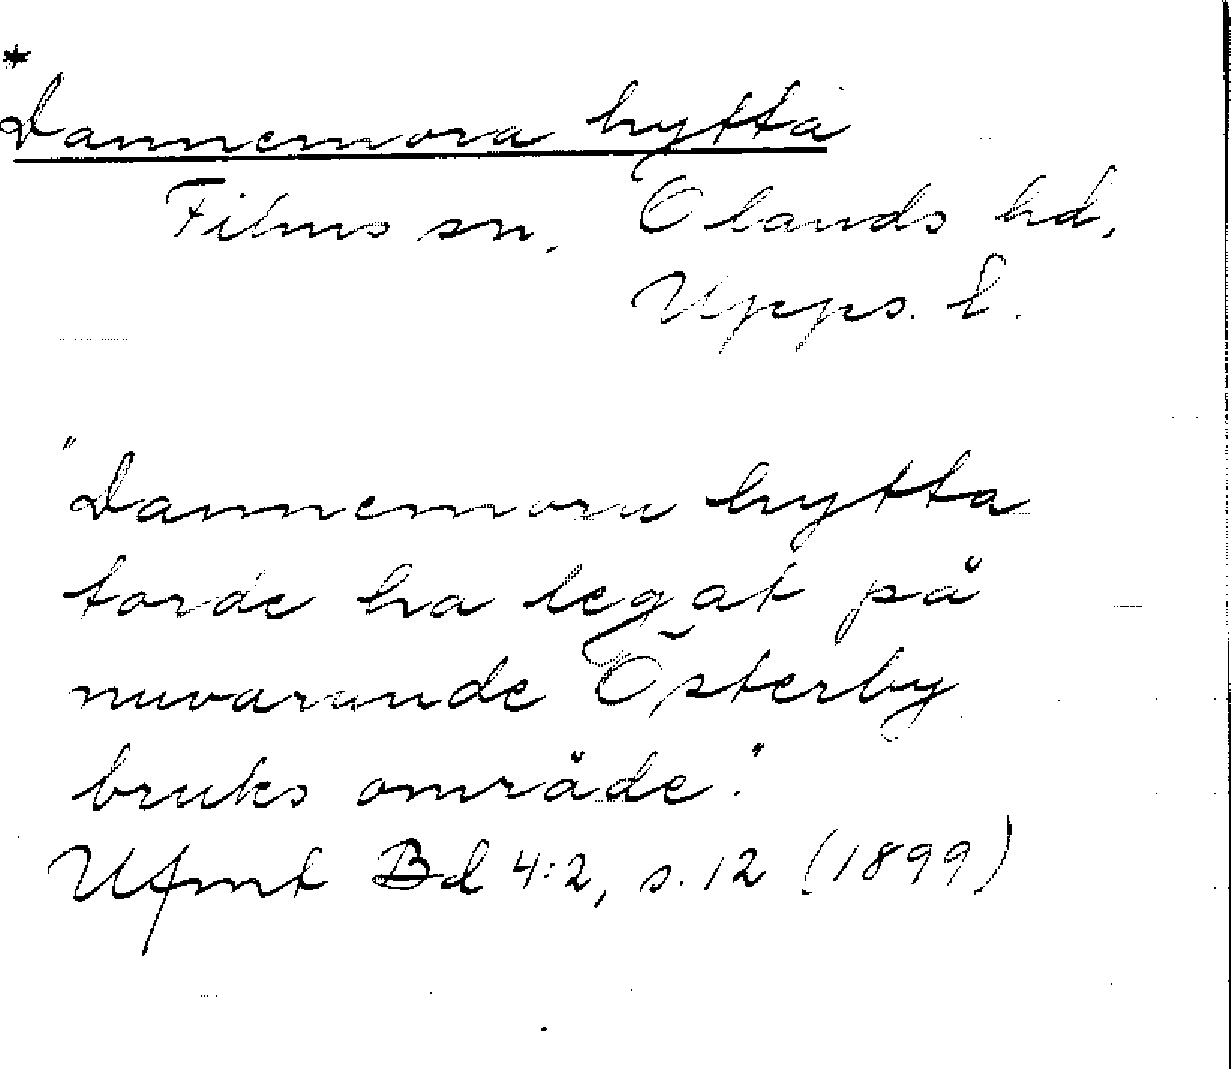 *
Dannemora hytta
Films sn. Olands hd,
Upps. l.
"Dannemora hytta
torde ha legat på
nuvarande Österby
bruks område."
Ufmt Bd 4:2, s. 12 (1899)